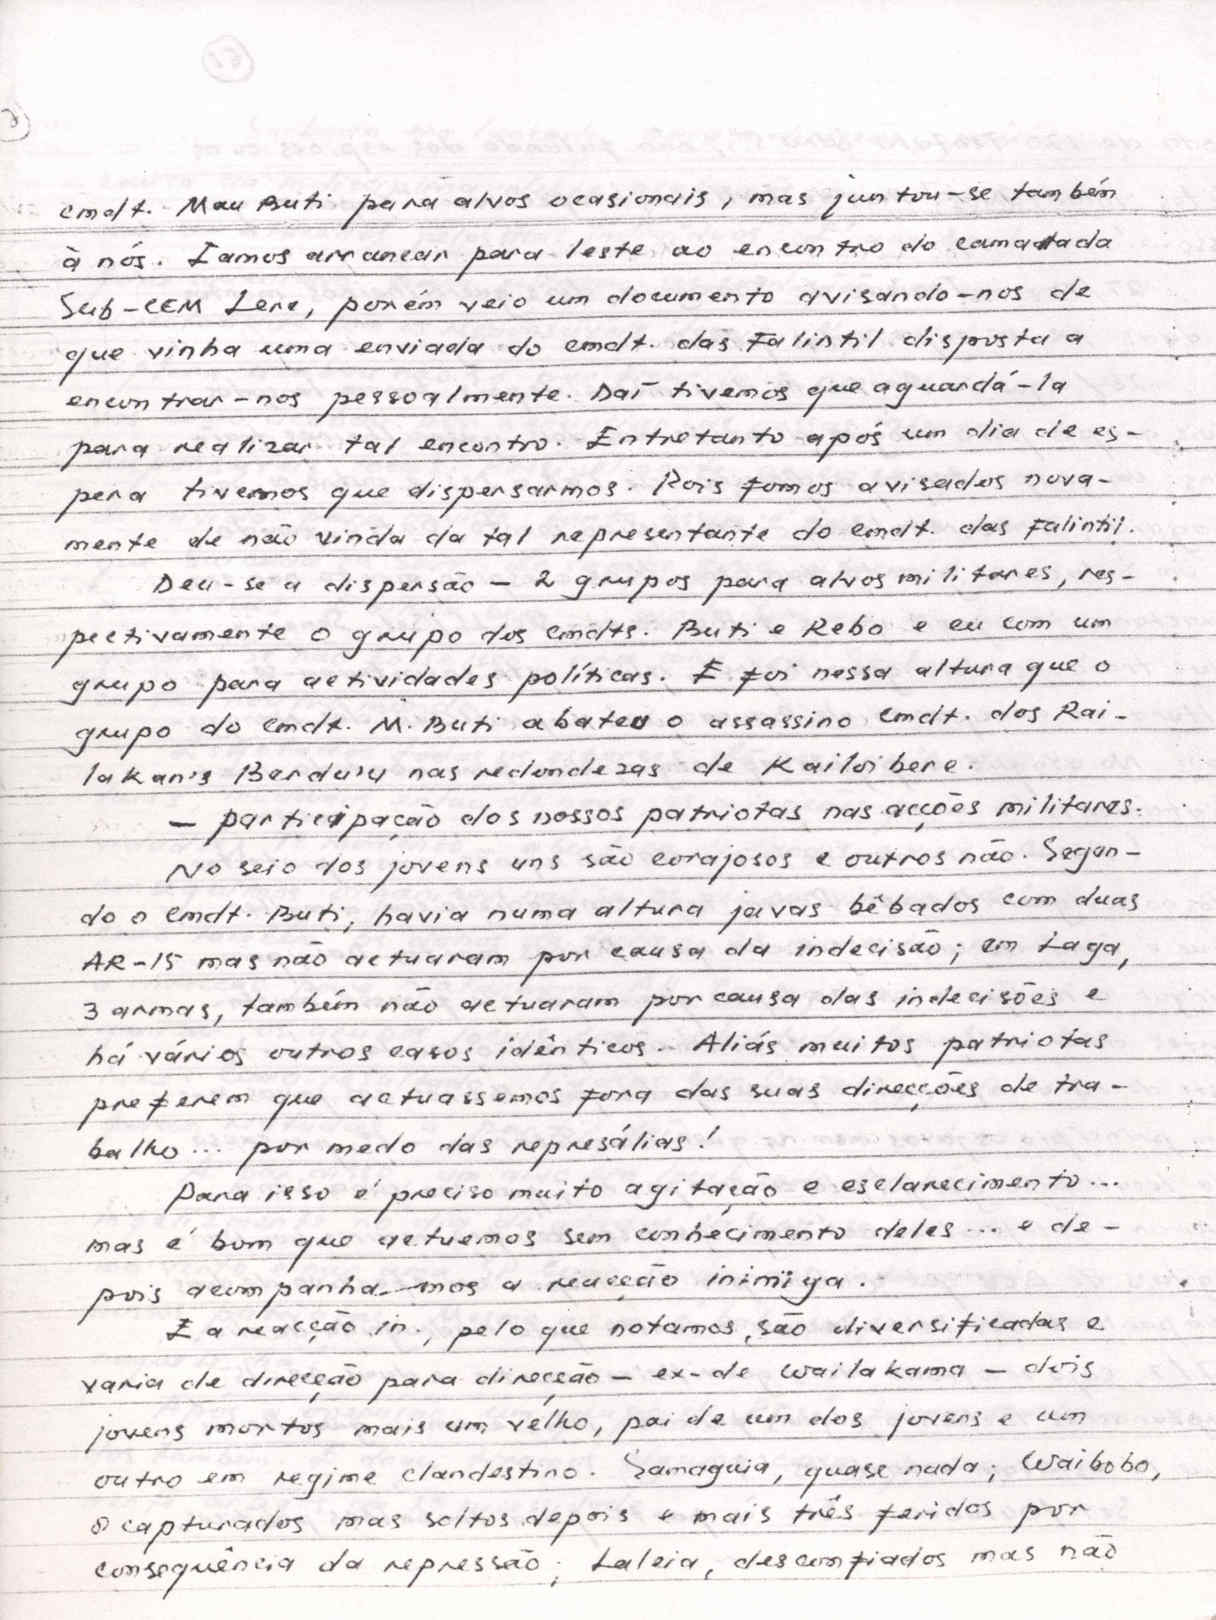 cmdt. Mau Buti para alvos ocasionais, mas juntou-se também
à nós. Iamos arrancar para leste ao encontro do camarada
Sub-CEM Lere, porém veio um documento avisando-nos de
que vinha uma enviada do cmdt. das Falintil disposta a
encontrar-nos pessoalmente. Daí tivemos que aguardá-la
para realizar tal encontro. Entretanto após um dia de es-
pera tivemos que dispersarmos. Pois fomos avisados nova-
mente de não vinda da tal representante do cmdt. das Falintil.
Deu-se a dispersão - 2 grupos para alvos militares, res-
pectivamente o grupo dos cmdts. Buti e Rebo e eu com um
grupo para actividades políticas. E foi nessa altura que o
grupo do cmdt. M. Buti abateu o assassino cmdt. dos Rai-
lakan's nas redondezas de Kailoibere.
- participação dos nossos patriotas nas acções militares.
No seio dos jovens uns são corajosos e outros não. Segun-
do o cmdt. Buti, havia numa altura javas bêbados com duas
AR-15 mas não actuaram por causa da indecisão; em Laga,
3 armas, também não actuaram por causa das indecisões e
há vários outros casos idênticos. Aliás muitos patriotas
preferem que actuassemos fora das suas direcções de tra-
balho... por medo das represálias!
Para isso é preciso muito agitação e esclarecimento...
mas é bom que actuemos sem conhecimento deles... e de-
pois acompanha-mos a reacção inimiga.
E a reacção in., pelo que notamos, são diversificadas e
varia de direcção para direcção - ex- de Wailakama - dois
jovens mortos mais um velho, pai de um dos jovens e um
outro em regime clandestino. Samaguia, quase nada; Waibobo,
8 capturados mas soltos depois e mais três feridos por
consequência da repressão; Laleia, descomfiados mas não